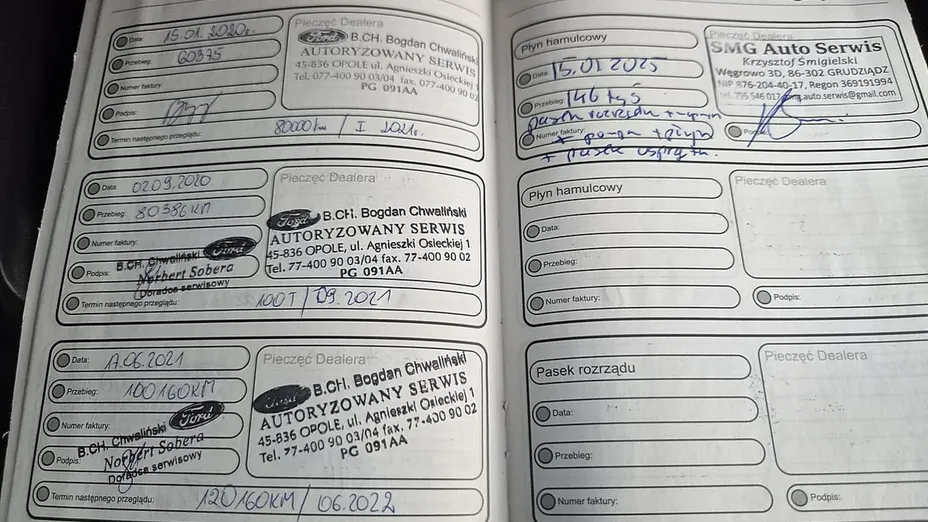 Data: 15.01.2020r.
Przebieg: 60375
Numer faktury:
Podpis:
Termin następnego przeglądu: 80000km / I 2021r.
Pieczęć Dealera
Ford B.CH. Bogdan Chwaliński
AUTORYZOWANY SERWIS
45-836 OPOLE, ul. Agnieszki Osieckiej 1
Tel. 077-400 90 03/04 fax. 077-400 90
PG 091AA
Data: 02.09.2020
Przebieg: 80386KM
Numer faktury:
Podpis:
B.CH. Chwaliński Ford
Norbert Sobera
Doradca serwisowy
Termin następnego przeglądu: 100T / 09.2021
Pieczęć Dealera
Ford B.CH. Bogdan Chwaliński
AUTORYZOWANY SERWIS
45-836 OPOLE, ul. Agnieszki Osieckiej 1
Tel. 77-400 90 03/04 fax. 77-400 90 02
PG 091AA
Data: 17.06.2021
Przebieg: 100160KM
Numer faktury:
Podpis:
B.CH. Chwaliński Ford
Norbert Sobera
Doradca serwisowy
Termin następnego przeglądu: 120160KM / 06.2022
Pieczęć Dealera
Ford B.CH. Bogdan Chwaliński
AUTORYZOWANY SERWIS
45-836 OPOLE, ul. Agnieszki Osieckiej 1
Tel. 77-400 90 03/04 fax. 77-400 90 02
PG 091AA
Płyn hamulcowy
Data: 15.01 2025
Przebieg: 146 tyś
pasek rozrządu +
Numer faktury: + pompa + płyn
+ pasek osprzętu.
Podpis:
Pieczęć Dealera
SMG Auto Serwis
Krzysztof Śmigielski
Węgrowo 3D, 86-302 GRUDZIĄDZ
NIP 876-204-40-17, Regon 369191994
tel. 795 546 017 smg.auto.serwis@gmail.com
Płyn hamulcowy
Data:
Przebieg:
Numer faktury:
Podpis:
Pieczęć Dealera
Pasek rozrządu
Data:
Przebieg:
Numer faktury:
Podpis:
Pieczęć Dealera